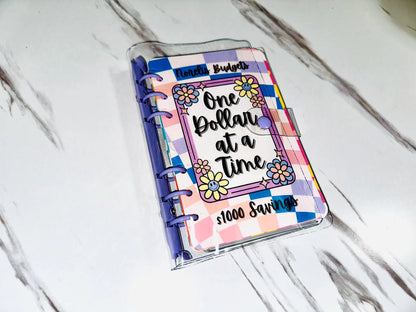 Noretis Budgets
One
Dollar
at a
Time
$1000 Savings